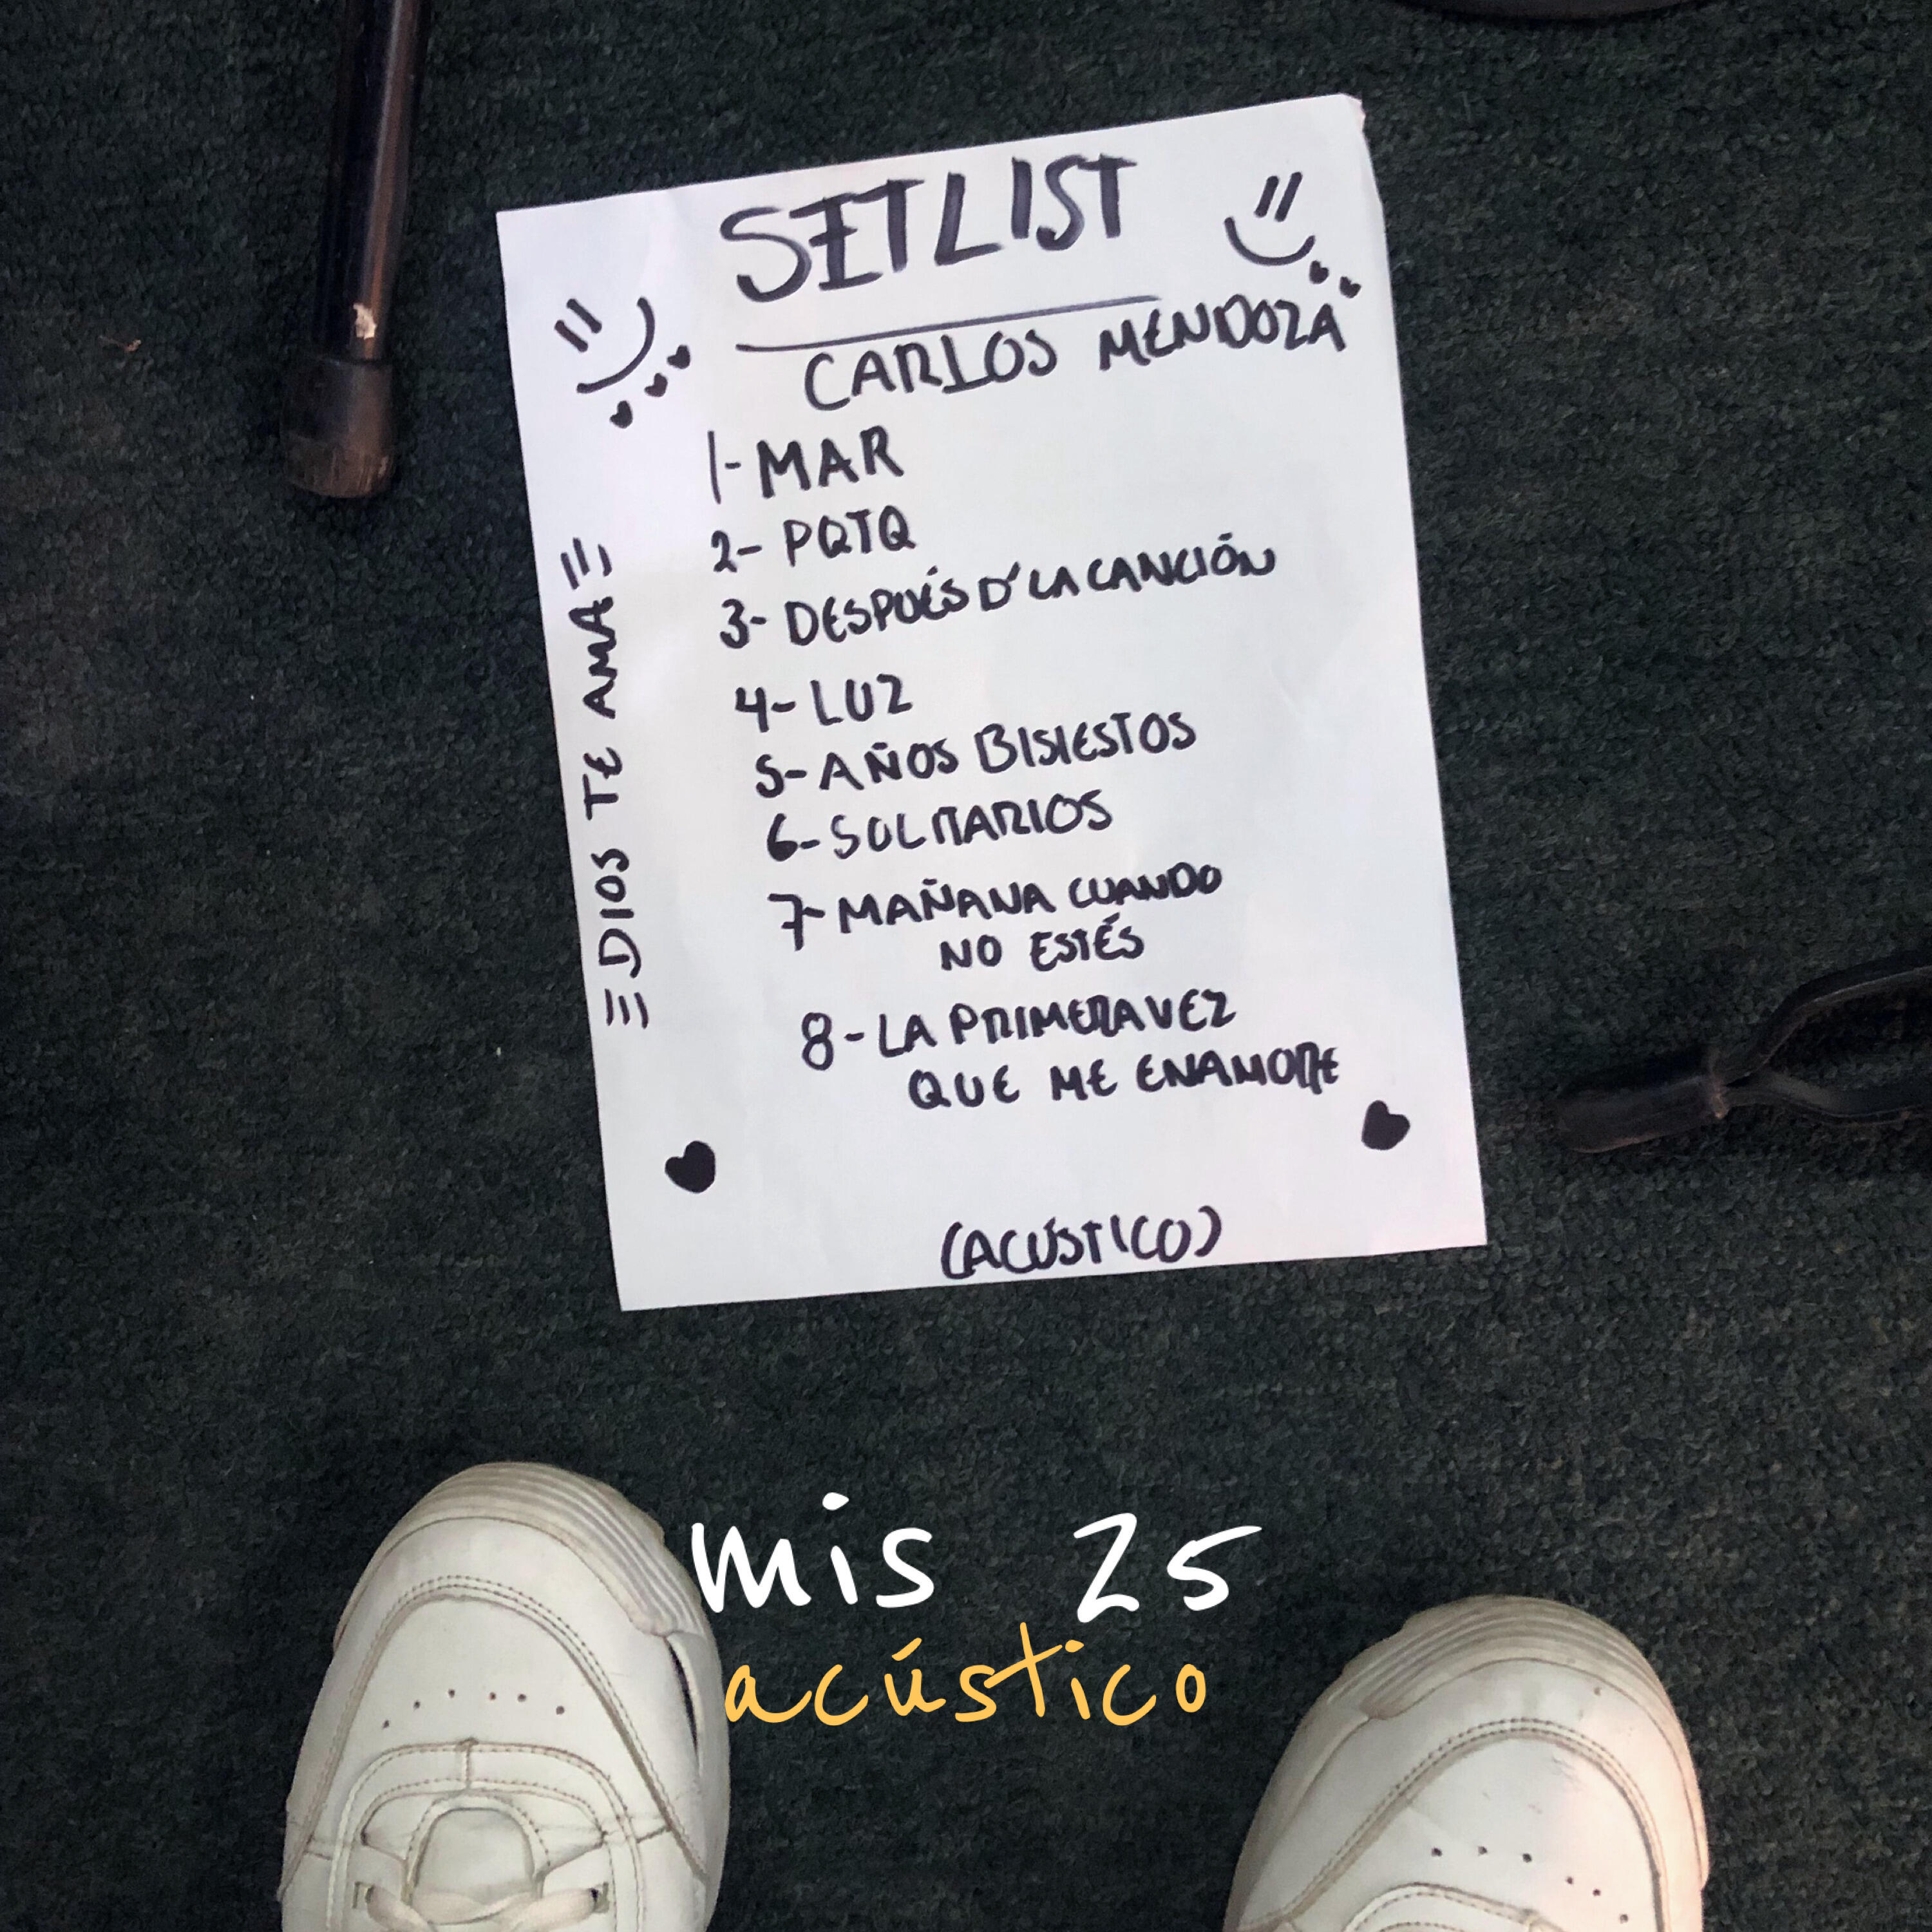 SETLIST
CARLOS MENDOZA
1-MAR
2-PQTQ
3-DESPUÉS D' LA CANCIÓN
4-LUZ
5-AÑOS BISIESTOS
6-SOLITARIOS
7-MAÑANA CUANDO
NO ESTÉS
8-LA PRIMERA VEZ
QUE ME ENAMORE
(ACÚSTICO)
DIOS TE AMA
mis 25
acústico